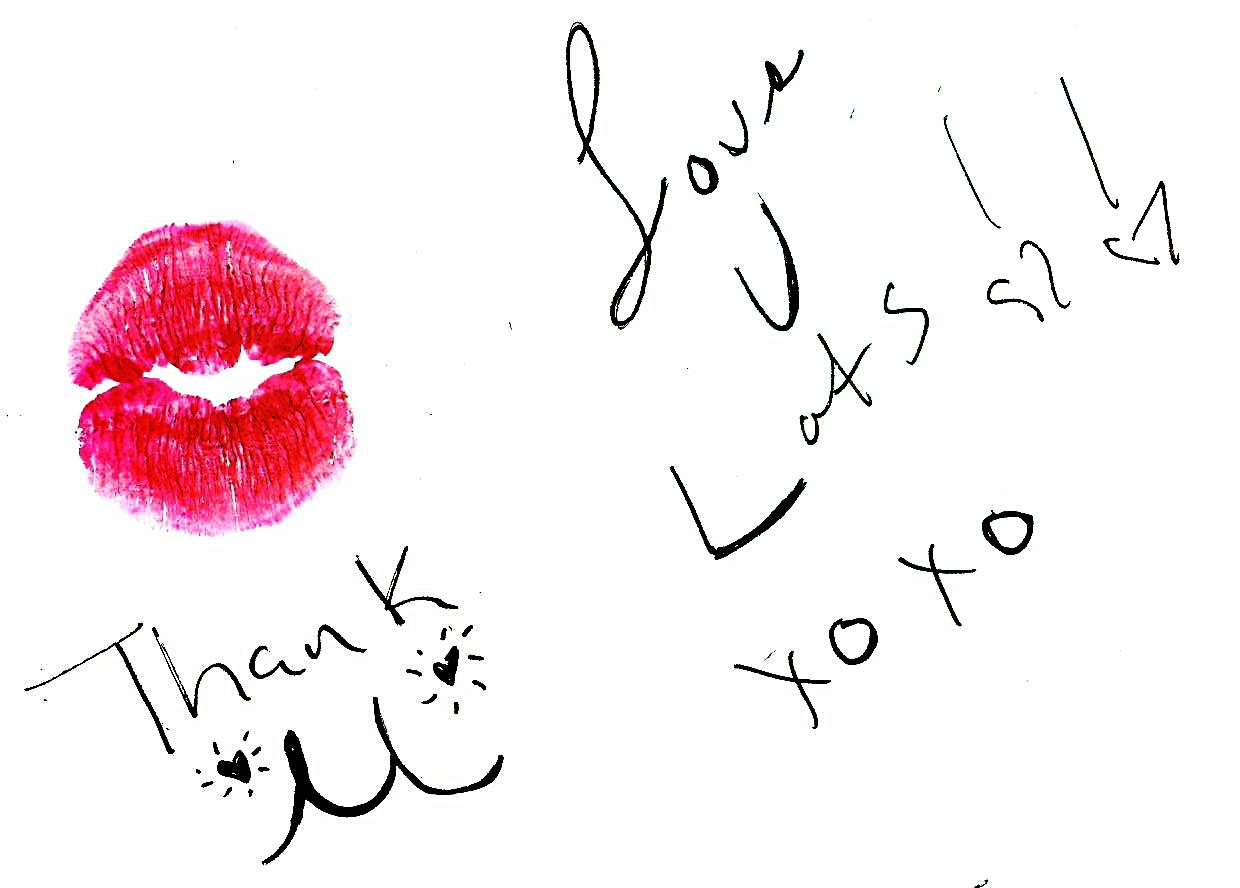 Love
U
Lots !!
xoxo
Thank
U